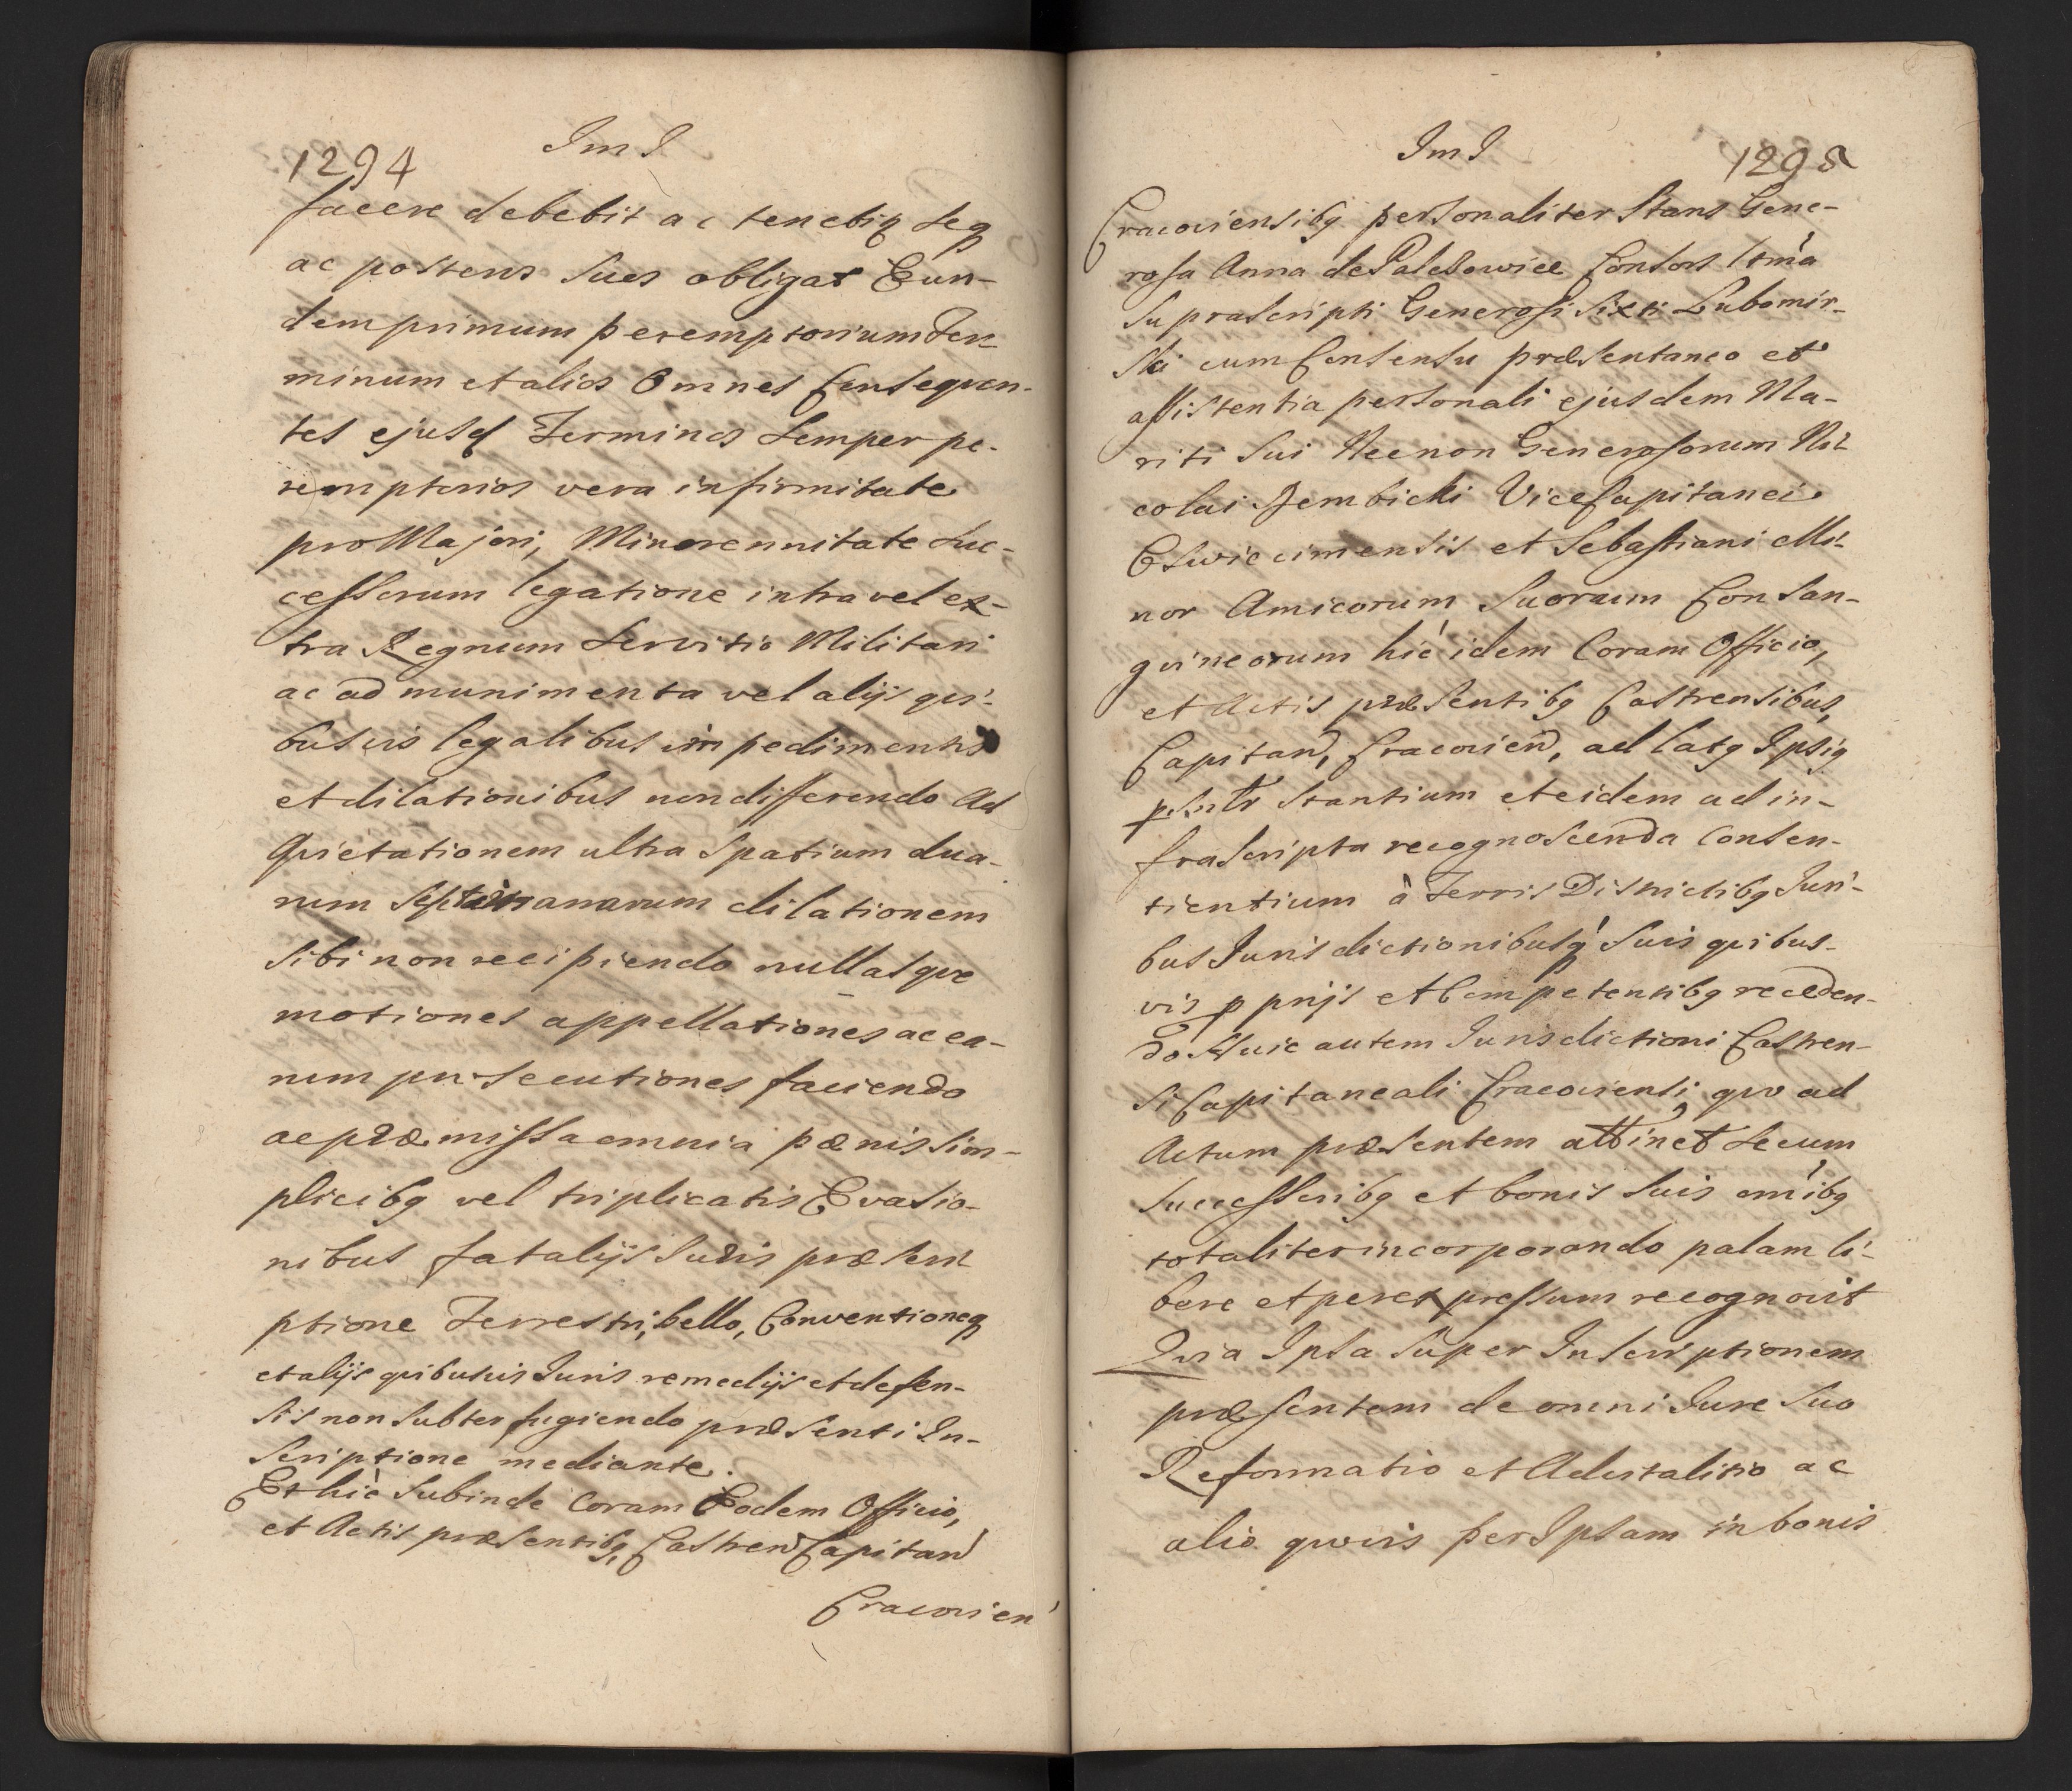 1294 ImI
facere debebit ac tenebiq seq
ac posteros suos obligat Eun-
dem primum peremptorium Ter-
minum et alios Omnes Consequen-
tes ejusd Terminos semper pe-
remptorios vera infirmitate
pro Majori, Minorennitate suc-
cessorum legatione intra vel ex-
tra Regnum servitio Militari
ac ad munimenta vel alijs qui-
busvis legalibus impedimentis
et dilationibus non differendo Ad
Quietationem ultra spatium dua-
rum Septimanarum dilationem
sibi non recipiendo nullasque
motiones appellationes ac ea-
rum prosecutiones faciendo
ac præmissa omnia pænis sim-
plicibq vel triplicatis Evasio-
nibus fatalijs Iuris præscri
ptione Terrestri, bello, Conventioneq
et alijs quibusvis Iuris remedijs et defen-
sis non subterfugiendo præsenti In-
scriptione mediante.
Et hic subinde Coram Eodem Officio,
et Actis præsentibq, Castren Capitan
Cracovien
ImI 1295
Cracoviensibq personaliter stans Gene-
rosa Anna de Palczowice Consors ltma
suprascripti Generosi Sixti Lubomir-
ski cum Consensu præsentaneo et
assistentia personali ejusdem Ma-
riti sui Necnon Generosorum Ni-
colai Dembicki ViceCapitanei
Oswiecimensis et Sebastiani Mi-
nor Amicorum suorum Consan-
guineorum hic idem Coram Officio,
et Actis præsentibq Castrensibus,
Capitan, Cracovien, ad latq Ipsiq
psnlr stantium et eidem ad in-
frascripta recognoscenda consen-
tientium à Terris Districtibq Iuri-
bus Iurisdictionibusq suis quibus-
vis pprijs et Competentibq receden-
do Huic autem Iurisdictioni Castren-
si Capitaneali Cracoviensi, quo ad
Actum præsentem attinet secum
successoribq et bonis suis omibq
totaliter incorporando palam li-
bere et per expressum recognovit
Quia Ipsa super Inscriptionem
præsentem de omni Iure suo
Reformatio et Advitalitio ac
alio quovis per Ipsam in bonis